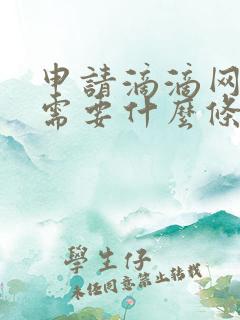 申請滴滴网
需要什麼條
學生仔
未经同意禁止转载